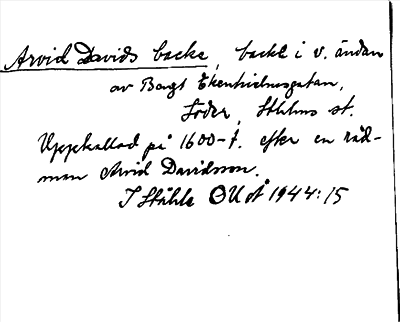 Arvid Davids backe, backe i v. ändan
av Bengt Ekenhielmsgatan,
Söder, Sthlms st.
Uppkallad på 1600-t. efter en råd-
man Arvid Davidsson.
I Ståhle OUÅ 1944:15